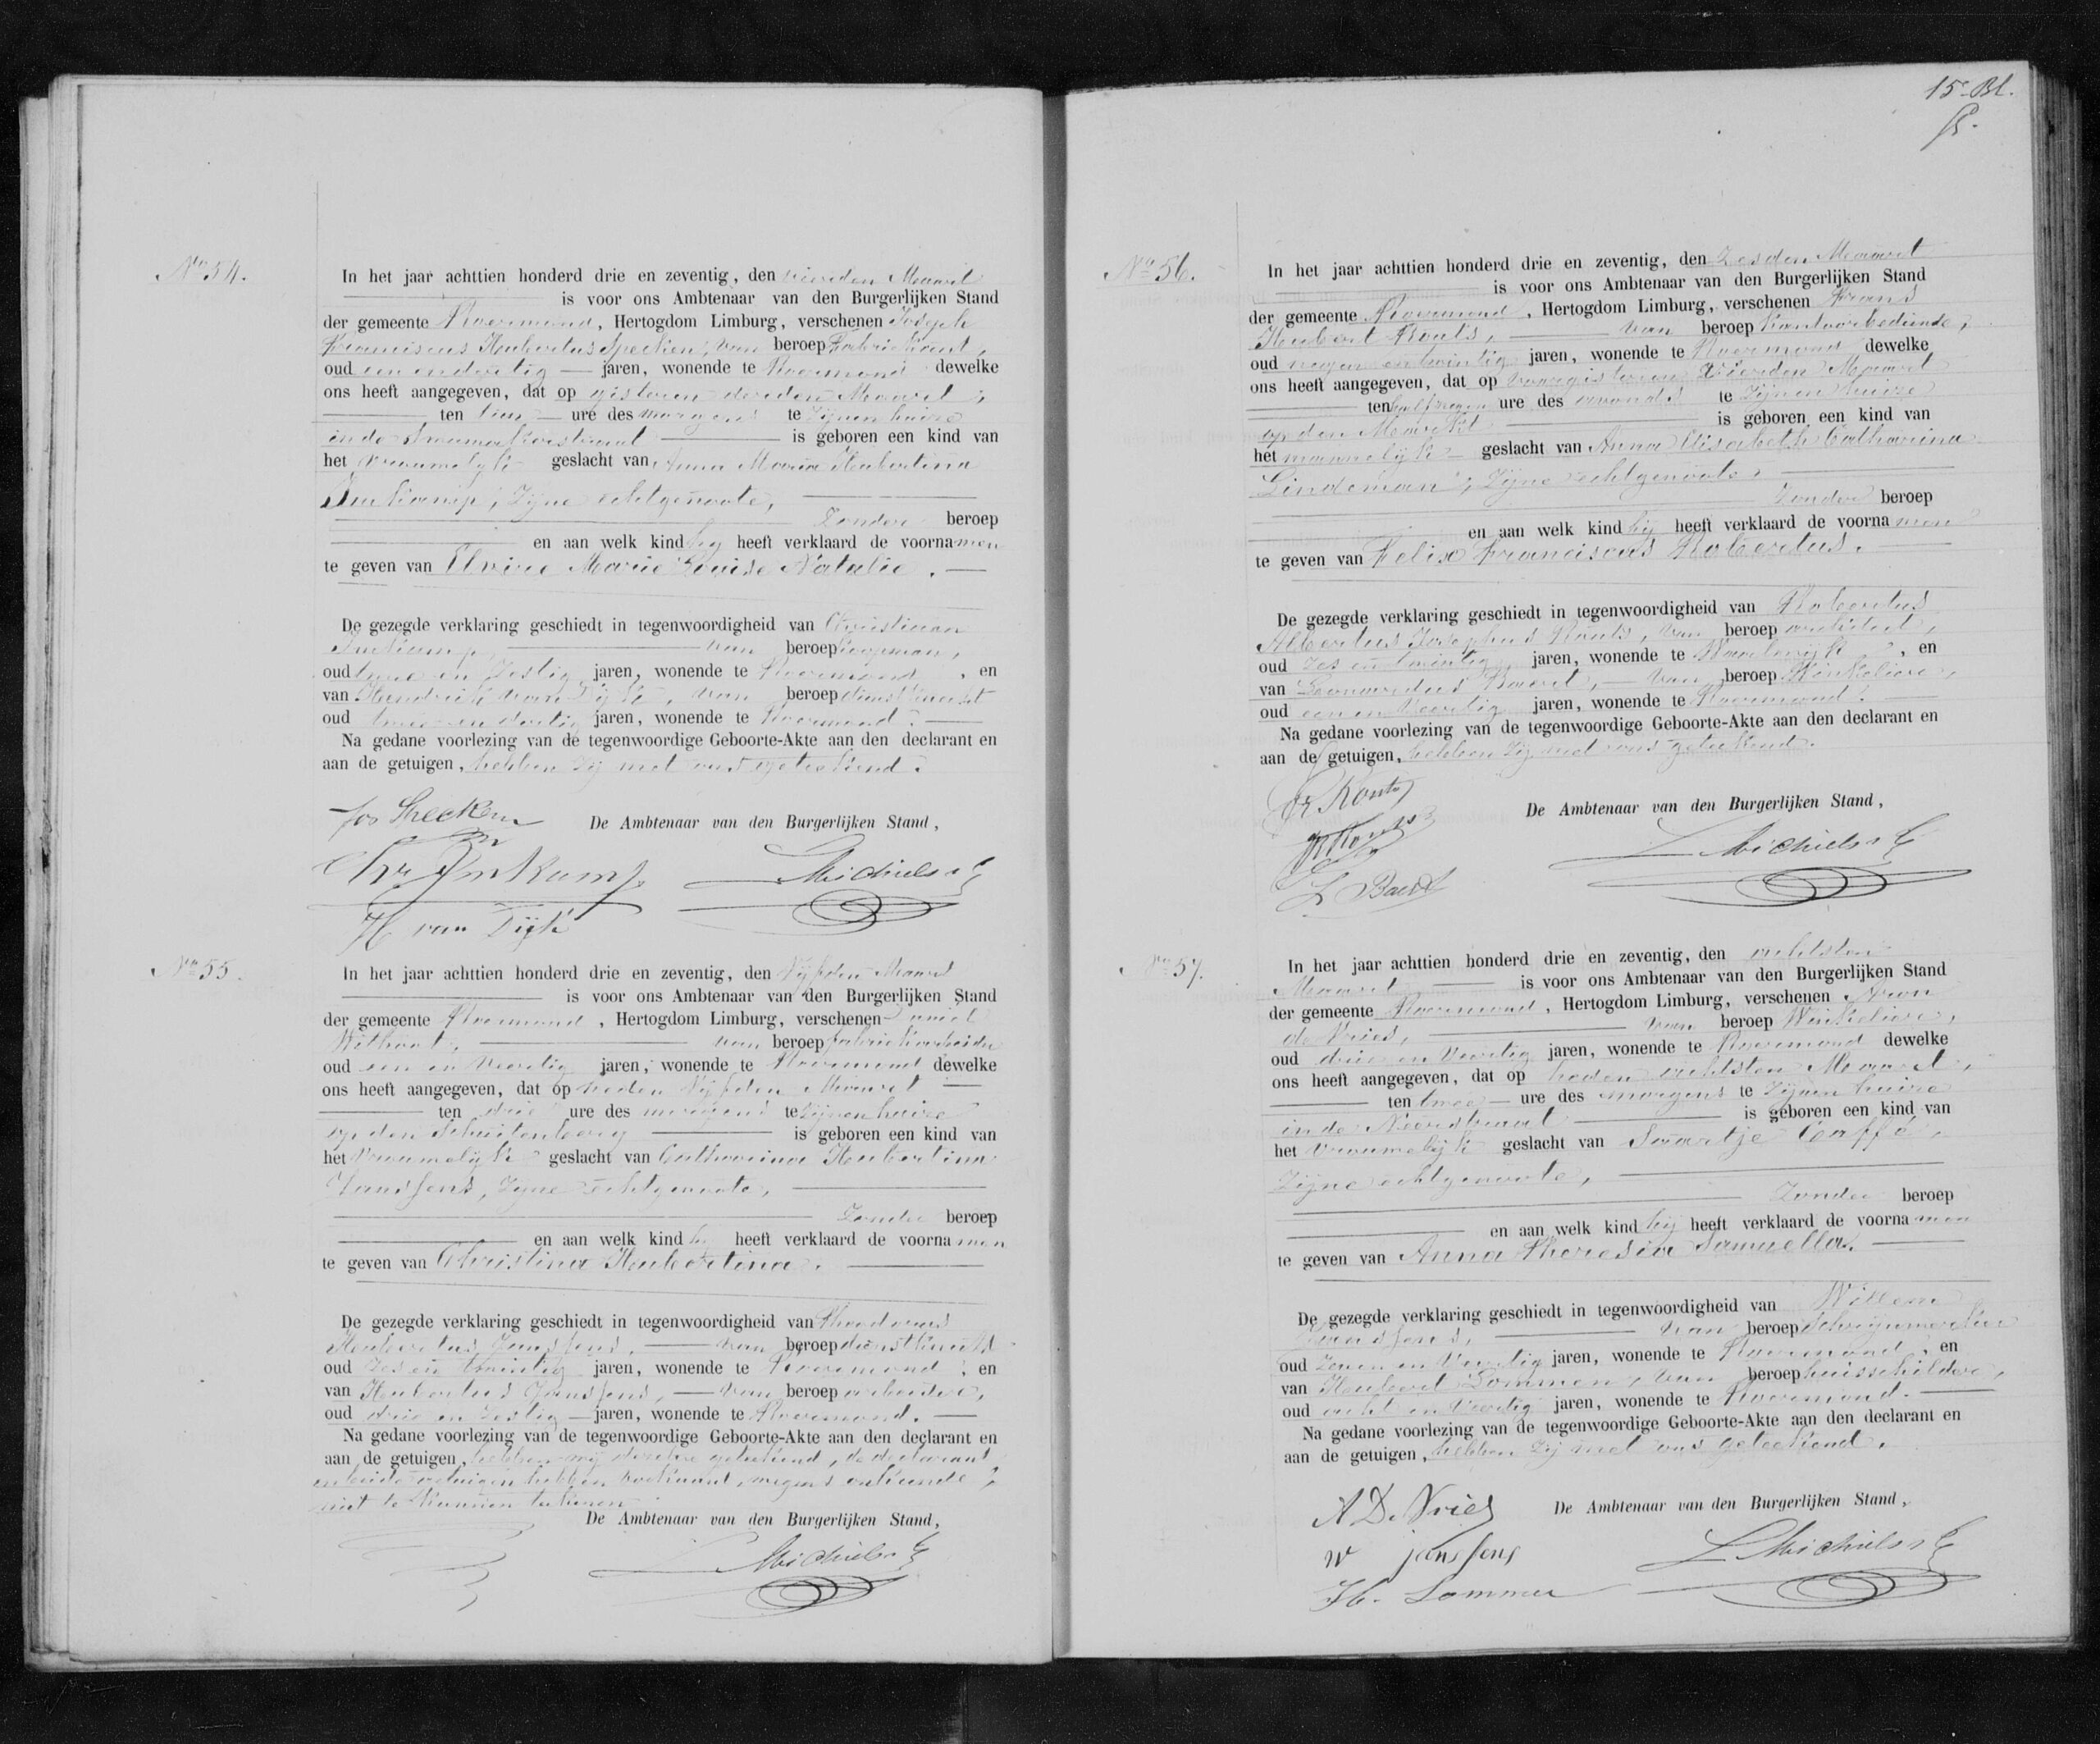 15e Bl.
No 54.
In het jaar achttien honderd drie en zeventig, den vierden Maart
is voor ons Ambtenaar van den Burgerlijken Stand
der gemeente Roermond, Hertogdom Limburg, verschenen Joseph
Franciscus Hubertus Specken, van beroep Fabrikant,
oud een en dertig jaren, wonende te Roermond dewelke
ons heeft aangegeven, dat op gisteren derden Maart,
ten tien ure des morgens te zijnen huize
in de straat is geboren een kind van
het vrouwelijk geslacht van Anna Maria Hubertina
Imkamp, zijne echtgenoote,
zonder beroep
en aan welk kind hij heeft verklaard de voornamen
te geven van Elvire Marie Louise Natalie.
De gezegde verklaring geschiedt in tegenwoordigheid van Christiaan
Imkamp, van beroep koopman,
oud en zestig jaren, wonende te Roermond, en
van Hendrik van Dijk, van beroep dienstknecht
oud twee en dertig jaren, wonende te Roermond.
Na gedane voorlezing van de tegenwoordige Geboorte-Akte aan den declarant en
aan de getuigen, hebben zij met ons geteekend.
Jos Specken
De Ambtenaar van den Burgerlijken Stand,
Chr. Imkamp
Michiels
H van Dijk
No 55.
In het jaar achttien honderd drie en zeventig, den Vijfden Maart
is voor ons Ambtenaar van den Burgerlijken Stand
der gemeente Roermond, Hertogdom Limburg, verschenen Daniel
Withoot, van beroep fabriekarbeider
oud een en veertig jaren, wonende te Roermond dewelke
ons heeft aangegeven, dat op heden Vijfden Maart
ten drie ure des morgens te zijnen huize
op den Schuitenberg is geboren een kind van
het Vrouwelijk geslacht van Catharina Hubertina
Janssens, zijne echtgenoote,
zonder beroep
en aan welk kind hij heeft verklaard de voornamen
te geven van Christina Hubertina.
De gezegde verklaring geschiedt in tegenwoordigheid van Theodorus
Hubertus Janssens, van beroep dienstknecht
oud zes en twintig jaren, wonende te Roermond, en
van Hubertus Janssens, van beroep arbeider,
oud drie en zestig jaren, wonende te Roermond.
Na gedane voorlezing van de tegenwoordige Geboorte-Akte aan den declarant en
aan de getuigen, hebben wij dezelve geteekend, de declarant
en beide getuigen hebben verklaard, wegens onkunde,
niet te kunnen teekenen.
De Ambtenaar van den Burgerlijken Stand,
Michiels
No 56.
In het jaar achttien honderd drie en zeventig, den Zesden Maart
is voor ons Ambtenaar van den Burgerlijken Stand
der gemeente Roermond, Hertogdom Limburg, verschenen Frans
Hubert Kouts, van beroep Kantoorbediende,
oud negen en twintig jaren, wonende te Roermond dewelke
ons heeft aangegeven, dat op voorgisteren Vierden Maart
ten half negen ure des avonds te zijnen huize
op den Markt is geboren een kind van
het mannelijk geslacht van Anna Elisabeth Catharina
Lindeman, zijne echtgenoote,
zonder beroep
en aan welk kind hij heeft verklaard de voornamen
te geven van Felix Franciscus Robertus.
De gezegde verklaring geschiedt in tegenwoordigheid van Robertus
Albertus Josephus Kouts, van beroep architect,
oud zes en twintig jaren, wonende te Waalwijk, en
van Leonardus Baert, van beroep Winkelier,
oud een en Veertig jaren, wonende te Roermond.
Na gedane voorlezing van de tegenwoordige Geboorte-Akte aan den declarant en
aan de getuigen, hebben zij met ons geteekend.
Fr Kouts
De Ambtenaar van den Burgerlijken Stand,
R Kouts
Michiels
L Baert
No 57.
In het jaar achttien honderd drie en zeventig, den achtsten
Maart is voor ons Ambtenaar van den Burgerlijken Stand
der gemeente Roermond, Hertogdom Limburg, verschenen Aron
de Vries, van beroep Winkelier,
oud drie en Veertig jaren, wonende te Roermond dewelke
ons heeft aangegeven, dat op heden achtsten Maart,
ten twee ure des morgens te zijnen huize
in de Neerstraat is geboren een kind van
het Vrouwelijk geslacht van Saartje Caffé,
zijne echtgenoote,
zonder beroep
en aan welk kind hij heeft verklaard de voornamen
te geven van Anna Theresia Samuella.
De gezegde verklaring geschiedt in tegenwoordigheid van Willem
Janssens, van beroep Schrijnwerker
oud zeven en Veertig jaren, wonende te Roermond, en
van Hubert Sommer, van beroep huisschilder,
oud acht en Veertig jaren, wonende te Roermond.
Na gedane voorlezing van de tegenwoordige Geboorte-Akte aan den declarant en
aan de getuigen, hebben zij met ons geteekend.
A D. Vries
De Ambtenaar van den Burgerlijken Stand,
W janssens
Michiels
Hb. Sommer